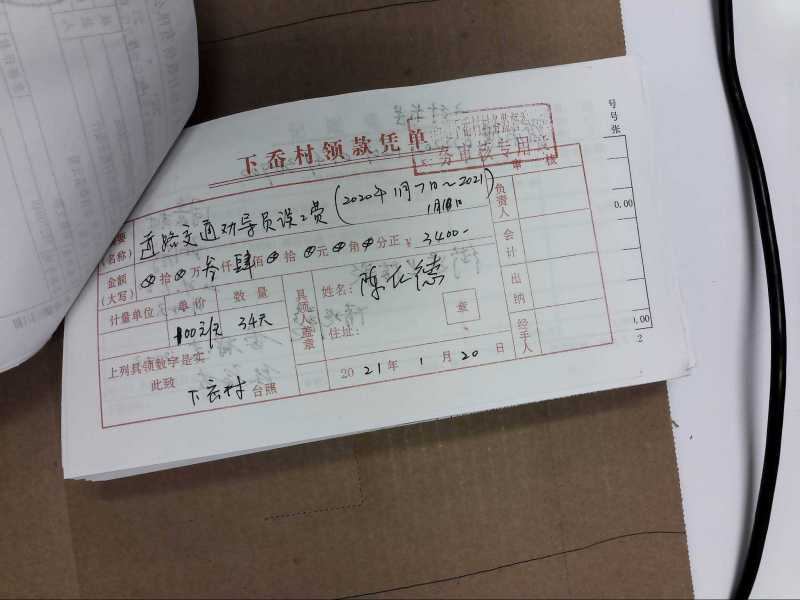 下岙村领款凭单
下岙村村务监督委
务审核专用章
审 核
摘要
(名称)
道路交通劝导员误工费(2020年11月7日~2021
1月18日)
金额
(大写)
⊗拾⊗万叁仟肆佰⊗拾⊗元⊗角⊗分正 ¥ 3400-
计量单位 单价 数量
100元/天 34天
具领人盖章
姓名: 陈仁德
住址:
章
上列具领数字是实
此致
下岙村 台照
2021年1月20日
负责人
会计
出纳
经手人
号
号
张
0.00
1.00
2